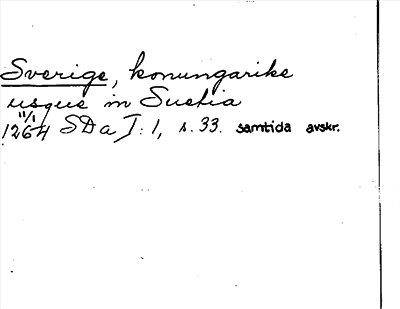 Sverige, konungarike
usque in Suetia
11/1
1264 SDa I: 1, s. 33. samtida avskr.